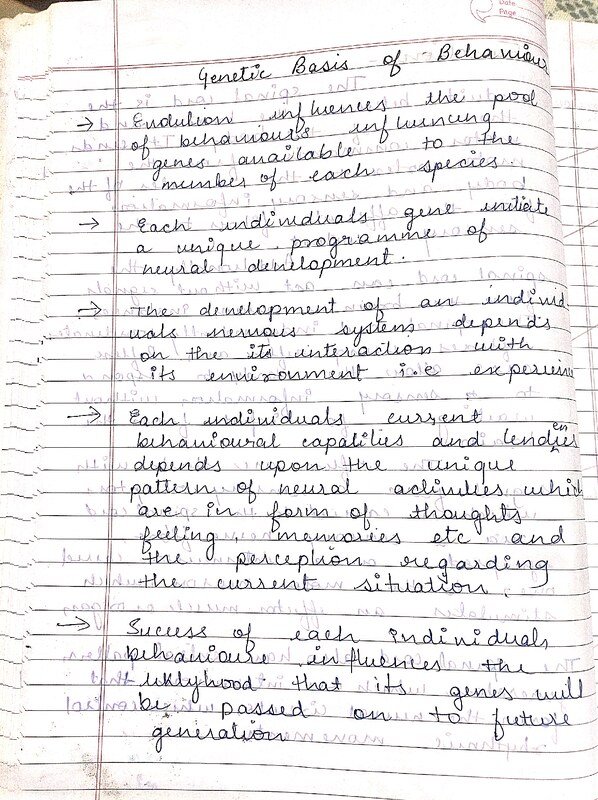 Date
Page
Genetic Basis of Behaviour
→ Evolution influences the pool
of behaviours influencing
genes available to the
member of each species.
→ Each individuals gene initiate
a unique programme of
neural development.
→ The development of an individ
uals nervous system depends
on the its interaction with
its environment i.e experien
→ Each individuals current
behavioural capalities and tendencies
depends upon the unique
pattern of neural activities whic
are in form of thoughts
feeling, memories etc and
the perception regarding
the current situation.
→ Success of each individuals
behavioure influences the
liklyhood that its genes will
be passed on to future
generation